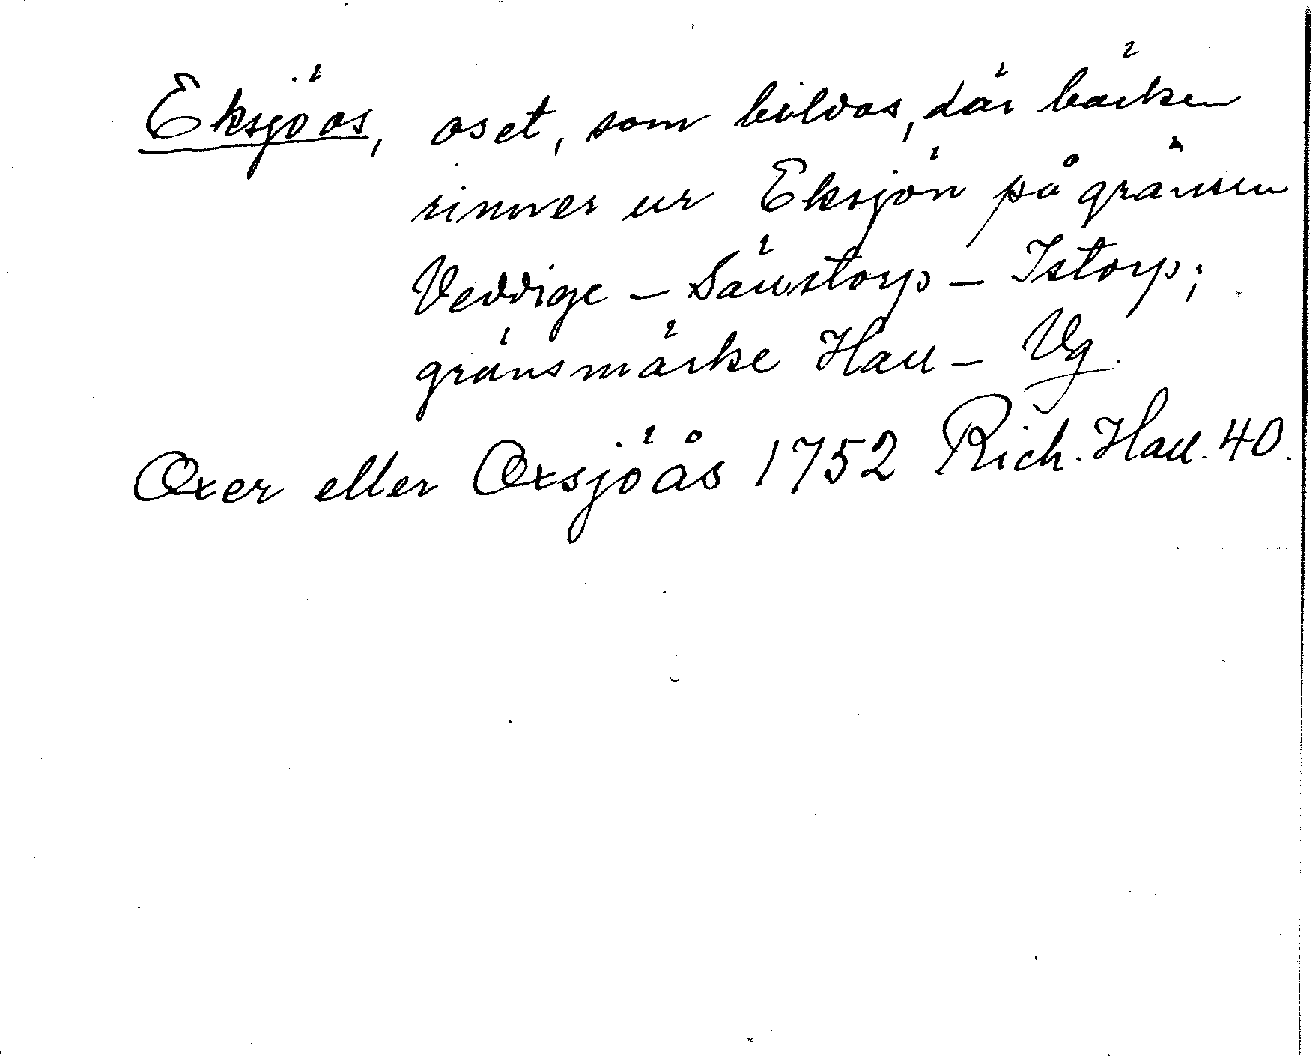 Eksjöos, oset, som bildas, där bäcken
rinner ur Eksjön på gränsen
Veddige – Sällstorp – Istorp;
gränsmärke Hall – Vg.
Oxer eller Oxsjöås 1752 Rich. Hall. 40.